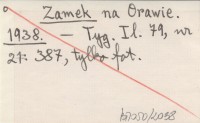 Zamek na Orawie.
1938. — Tyg. Il. 79, nr
21: 387, tylko fot.